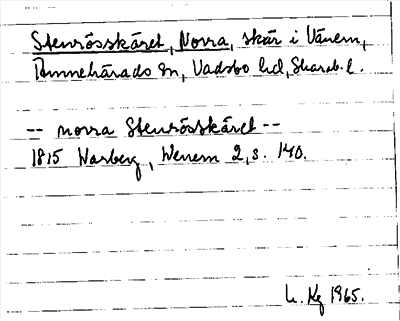 Stenrösskäret, Norra, skär i Vänern,
Amnehärads sn, Vadsbo hd, Skarab. l.
-- norra Stenrösskäret --
1815 Warberg, Wenern 2, s. 140.
L. Kg 1965.